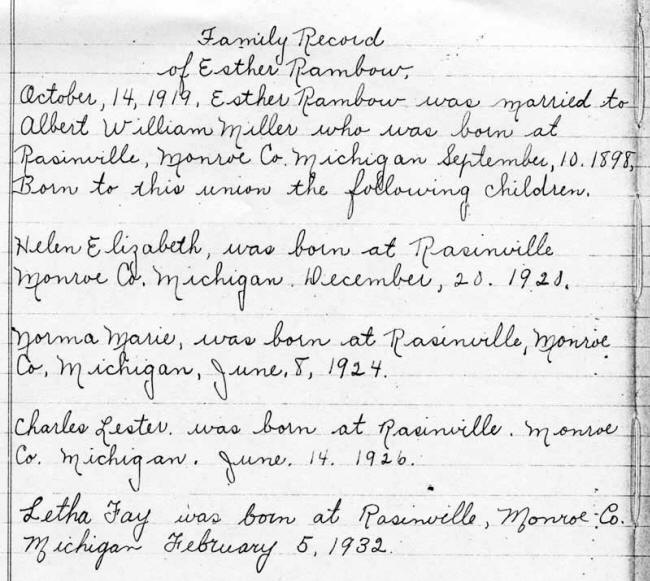 Family Record
of Esther Rambow.
October, 14, 1919. Esther Rambow was married to
Albert William Miller who was born at
Rasinville, Monroe Co. Michigan September, 10. 1898.
Born to this union the following children.
Helen Elizabeth, was born at Rasinville
Monroe Co. Michigan. December, 20. 1920.
Norma Marie, was born at Rasinville, Monroe
Co, Michigan, June, 8, 1924.
Charles Lester. was born at Rasinville. Monroe
Co. Michigan. June. 14. 1926.
Letha Fay was born at Rasinville, Monroe Co.
Michigan February 5, 1932.